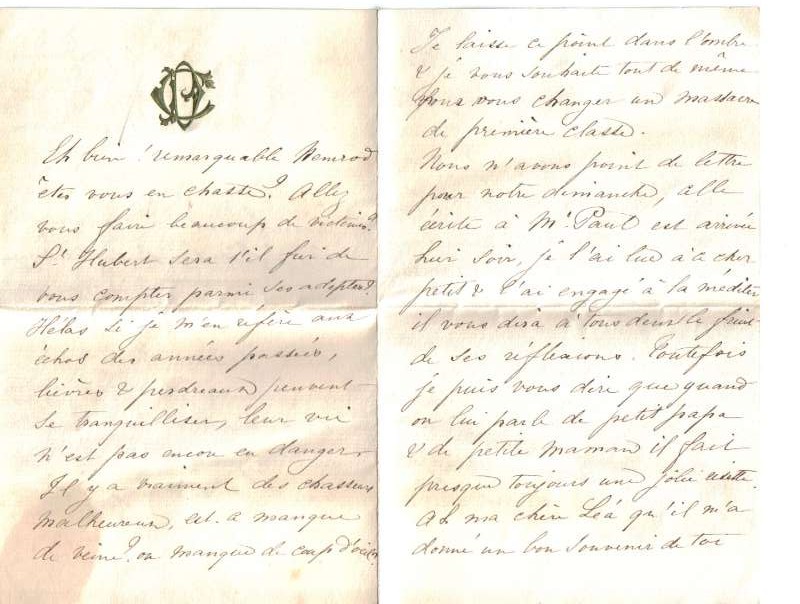 Eh bien ! remarquable Nemrod
êtes vous en chasse ? Allez
vous faire beaucoup de victimes ?
St Hubert sera t'il fier de
vous compter parmi ses adeptes ?
Hélas si je m'en réfère aux
échos des années passées,
lièvres & perdreaux peuvent
se tranquilliser, leur vie
n'est pas encore en danger.
Il y a vraiment des chasseurs
malheureux, est-ce manque
de veine ? ou manque de coup d'œil
Je laisse ce point dans l'ombre
& je vous souhaite tout de même
pour vous changer un massacre
de première classe.
Nous n'avons point de lettre
pour notre dimanche, celle
écrite à Mr Paul est arrivée
hier soir, je l'ai lue à ce cher
petit & l'ai engagé à la méditer
il vous dira à tous deux le fruit
de ses réflexions. Toutefois
je puis vous dire que quand
on lui parle de petit papa
& de petite maman il fait
presque toujours une jolie risette.
Ah ma chère Léa qu'il m'a
donné un bon souvenir de toi